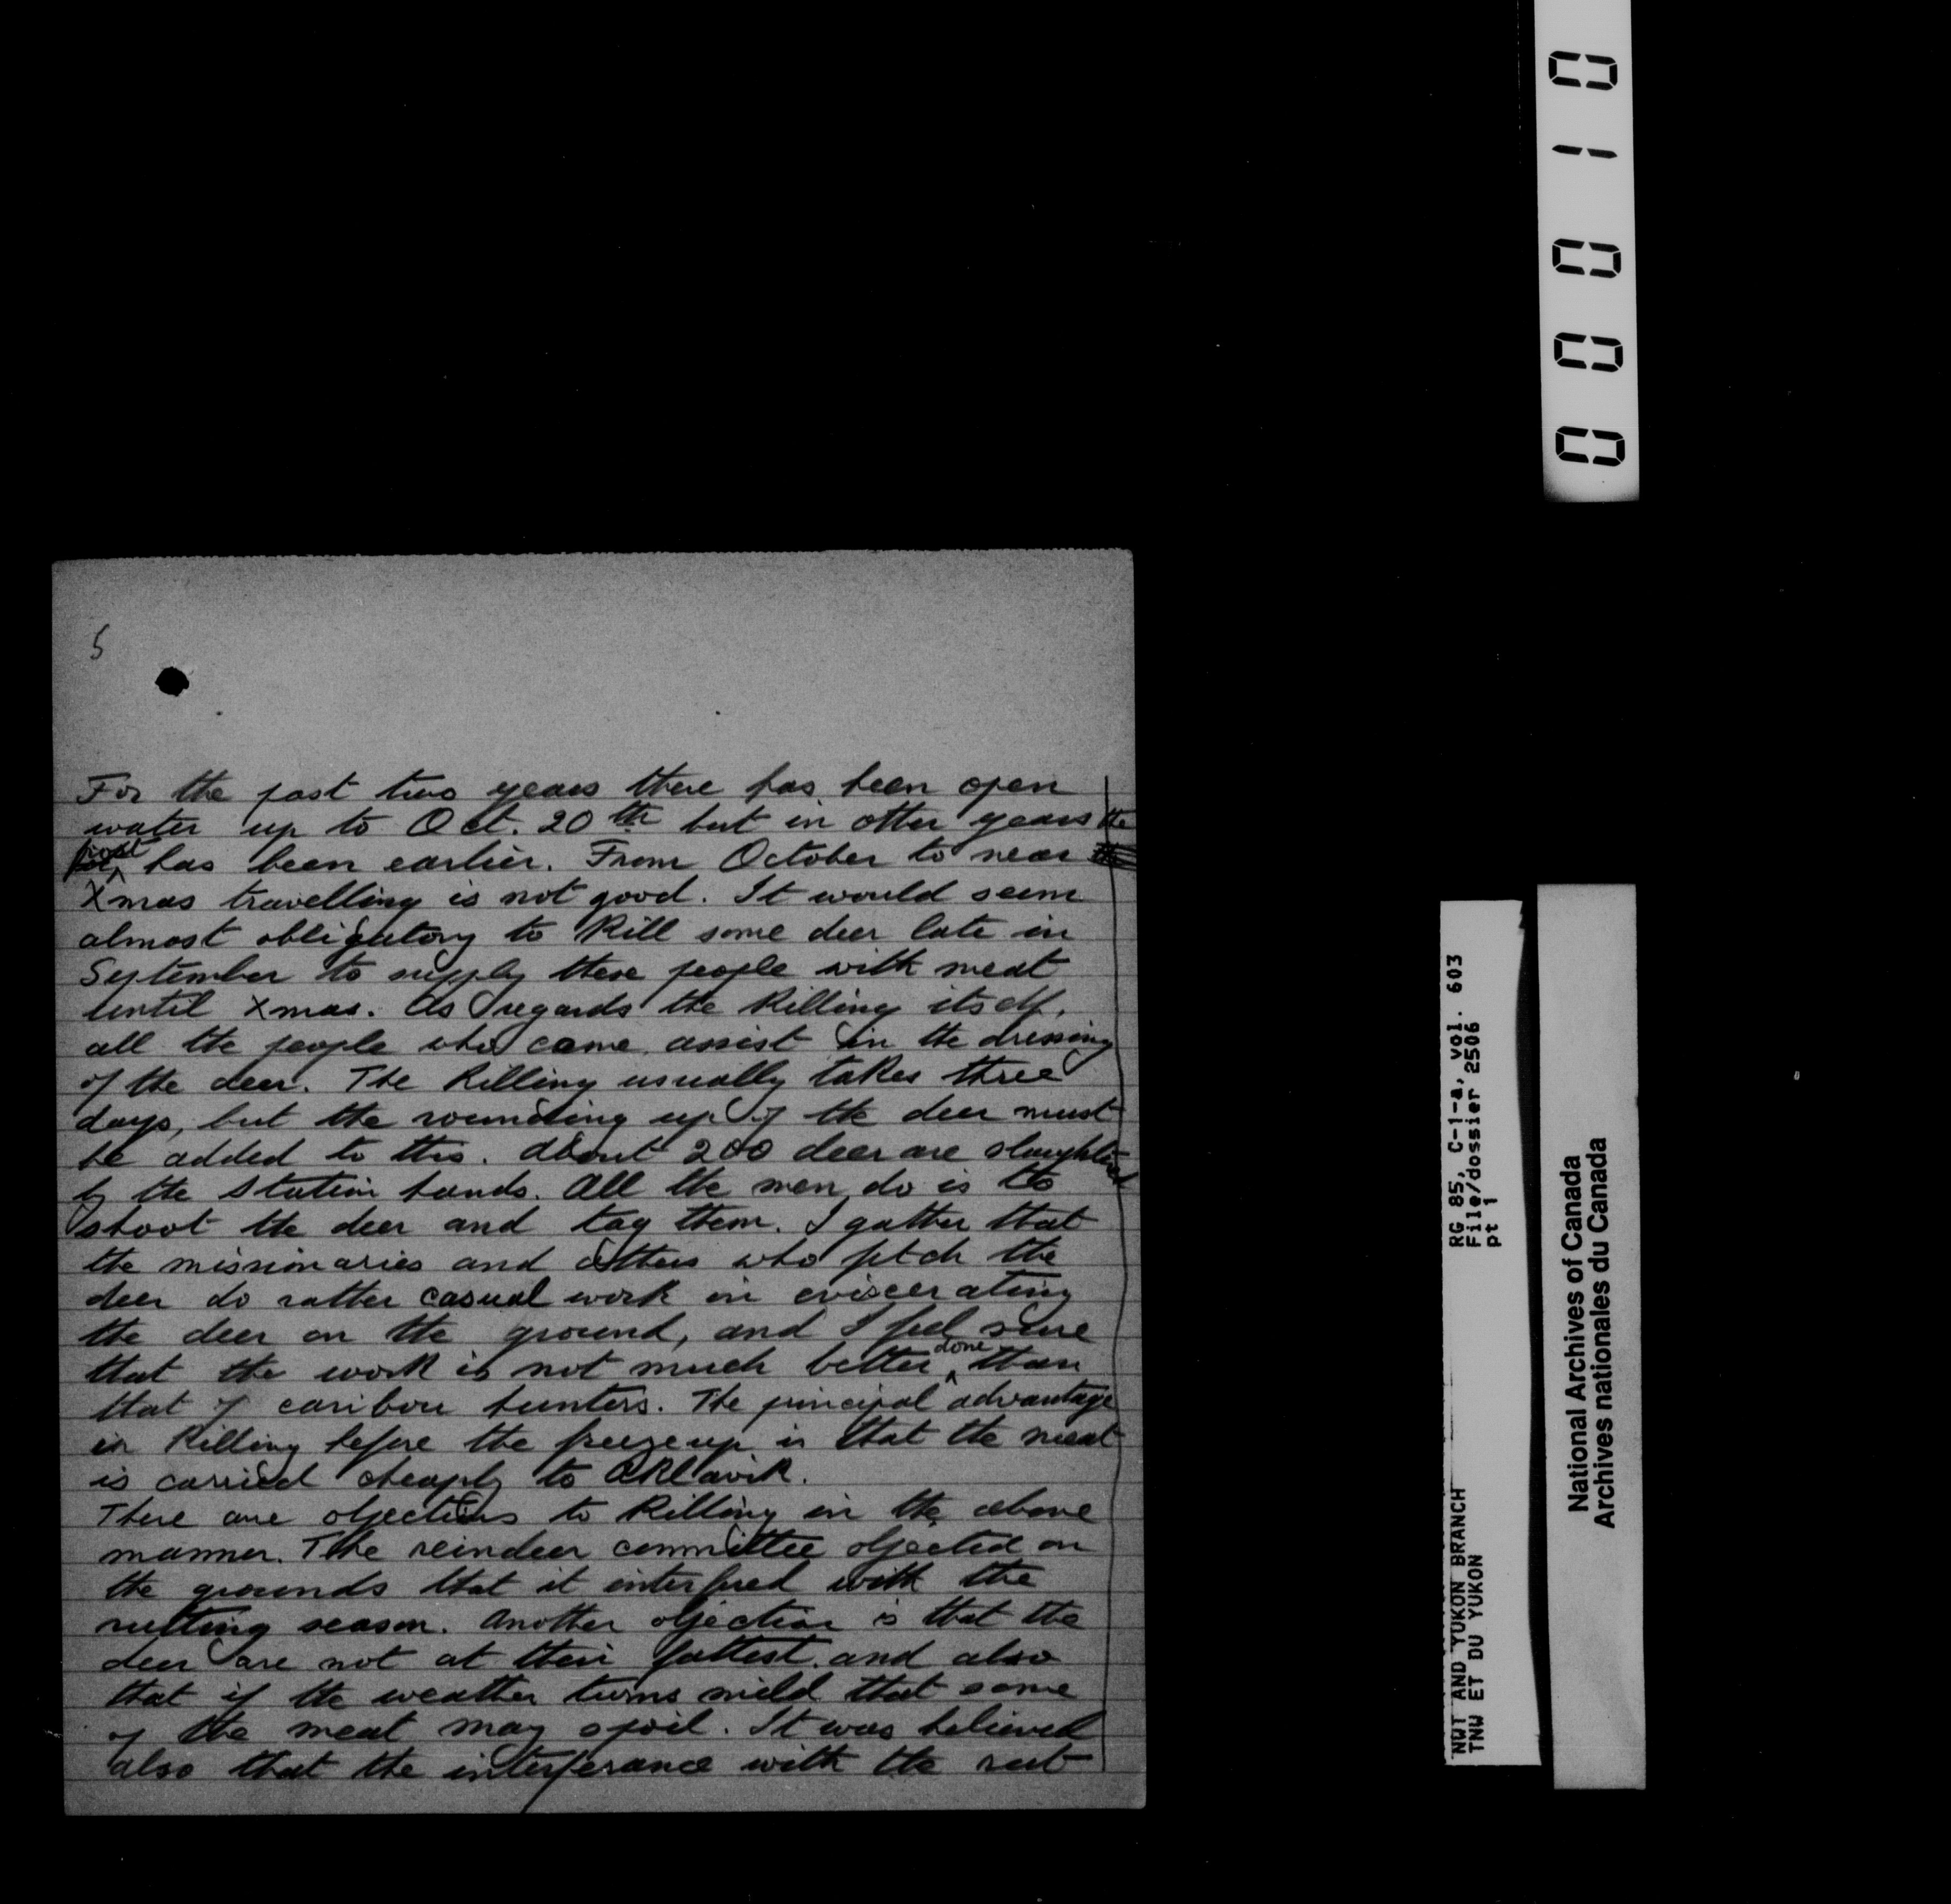 5
For the past two years there has been open
water up to Oct. 20th but in other years the
frost has been earlier. From October to near
Xmas travelling is not good. It would seem
almost obligatory to kill some deer late in
September to supply these people with meat
until Xmas. As regards the killing itself,
all the people who came assist in the dressing
of the deer. The killing usually takes three
days, but the rounding up of the deer must
be added to this. About 200 deer are slaughtered
by the station hands. All the men do is to
shoot the deer and tag them. I gather that
the missionaries and others who fetch the
deer do rather casual work in eviscerating
the deer on the ground, and I feel sure
that the work is not much better done than
that of caribou hunters. The principal advantage
in killing before the freezeup is that the meat
is carried cheaply to Aklavik.
There are objections to killing in the above
manner. The reindeer committee objected on
the grounds that it interfered with the
rutting season. Another objection is that the
deer are not at their fattest and also
that if the weather turns mild that some
of the meat may spoil. It was believed
also that the interferance with the rut
00010
RG 85, C-1-a, vol. 603
File/dossier 2506
pt 1
NWT AND YUKON BRANCH
TNW ET DU YUKON
National Archives of Canada
Archives nationales du Canada